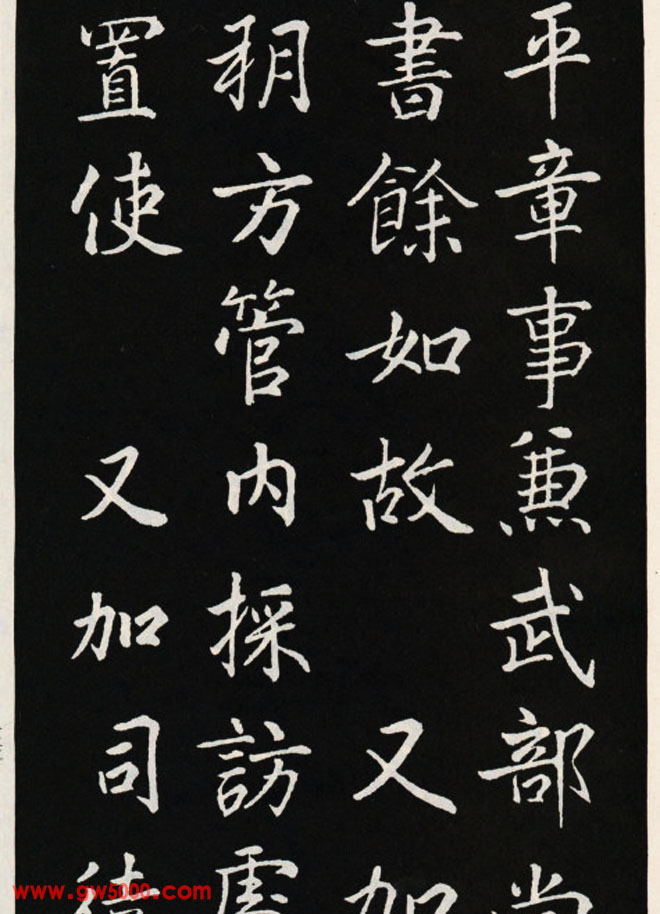 平章事兼武部尚
書餘如故 又加
朔方管内採訪處
置使 又加司徒
www.gw5000.com